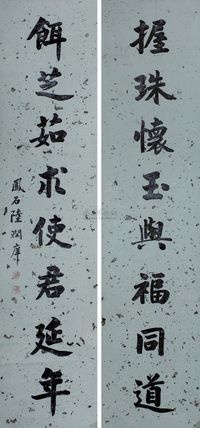 握珠懷玉與福同道
餌芝茹求使君延年
鳳石陸潤庠